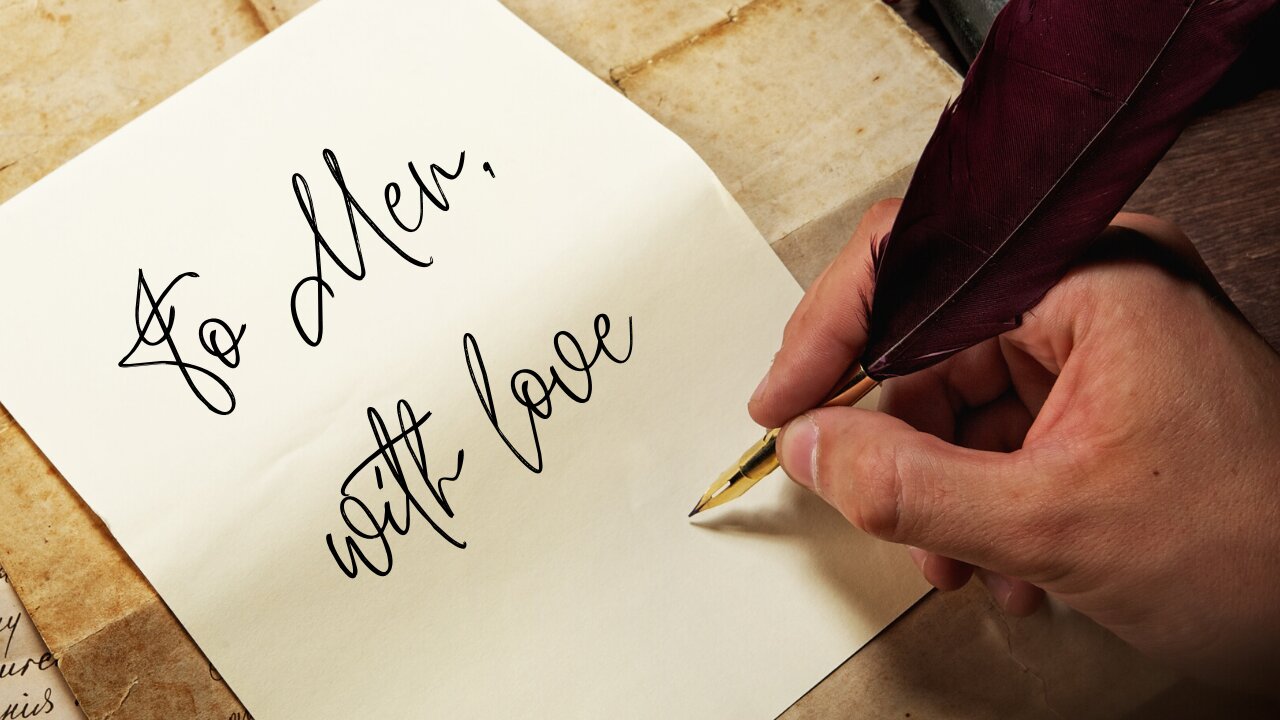 To Men,
with love